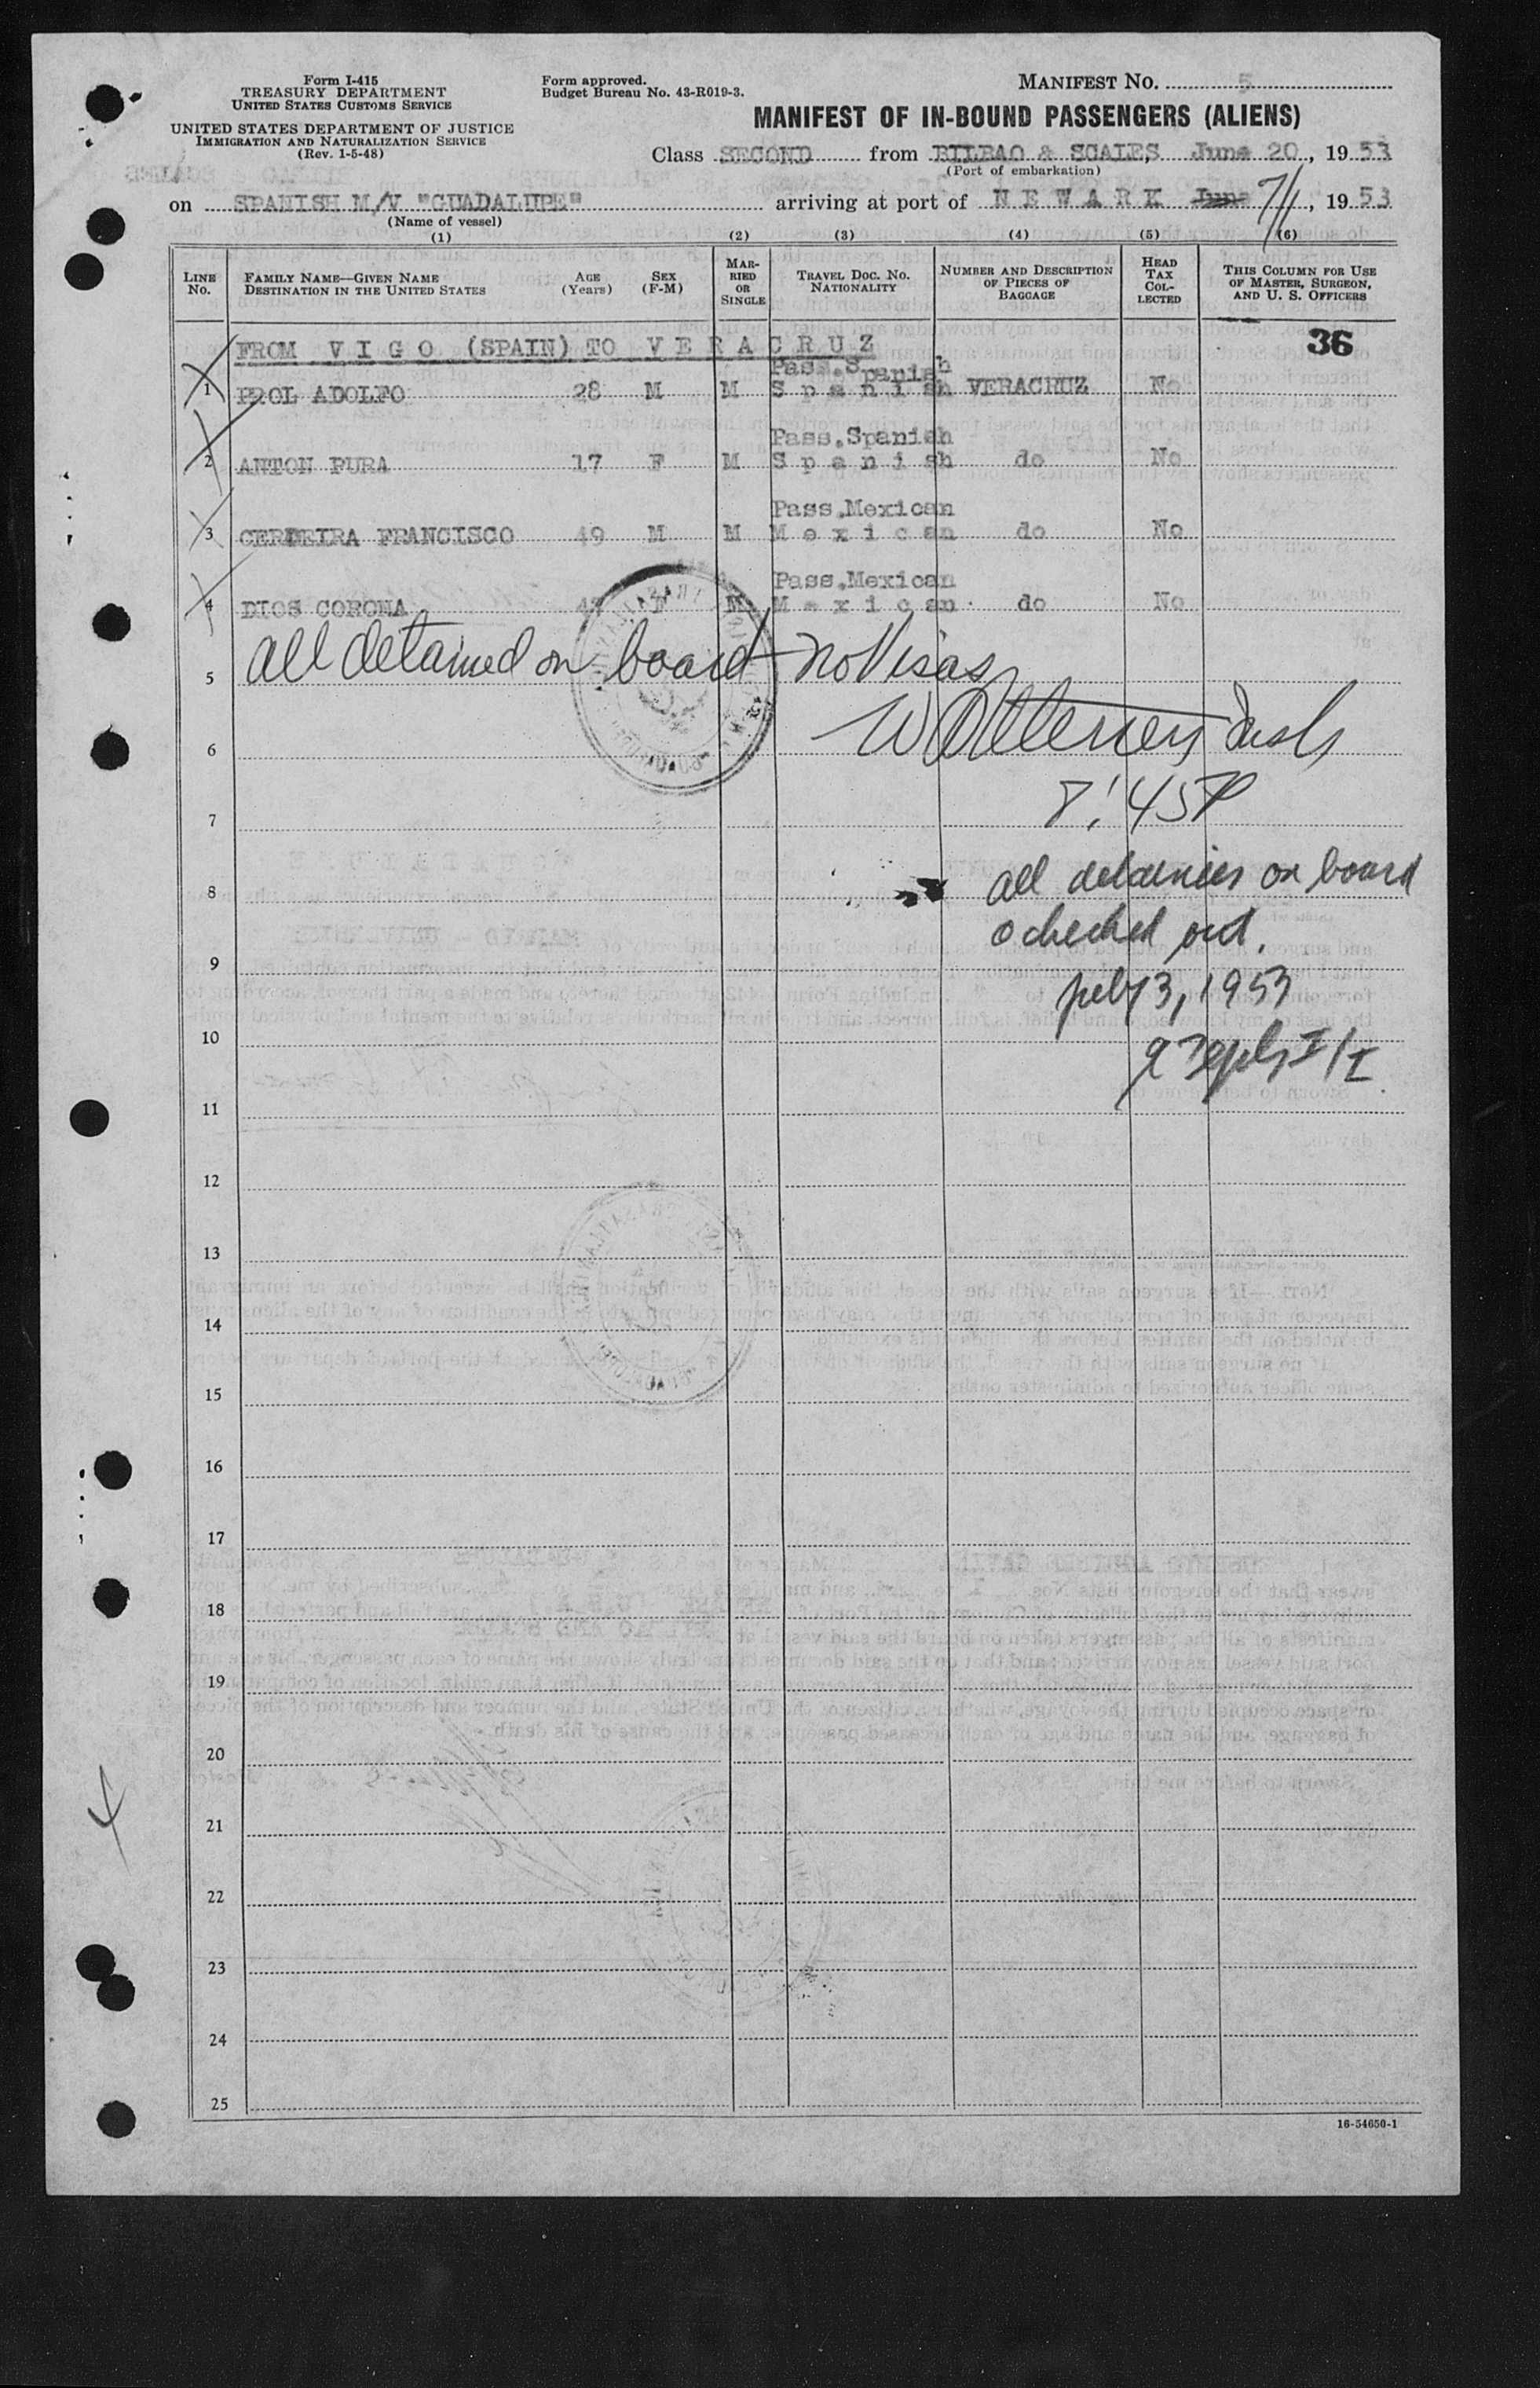 Form I-415
TREASURY DEPARTMENT
UNITED STATES CUSTOMS SERVICE
UNITED STATES DEPARTMENT OF JUSTICE
IMMIGRATION AND NATURALIZATION SERVICE
(Rev. 1-5-48)
Form approved.
Budget Bureau No. 43-R019-3.
MANIFEST NO. 5
MANIFEST OF IN-BOUND PASSENGERS (ALIENS)
Class SECOND from BILBAO & SCALES, June 20, 1953
(Port of embarkation)
on SPANISH M/V "GUADALUPE" arriving at port of N E W A R K June 7/1, 1953
(Name of vessel)
(1) (2) (3) (4) (5) (6)
LINE No. FAMILY NAME—GIVEN NAME DESTINATION IN THE UNITED STATES AGE (Years) SEX (F-M) MARRIED OR SINGLE TRAVEL DOC. NO. NATIONALITY NUMBER AND DESCRIPTION OF PIECES OF BAGGAGE HEAD TAX COLLECTED THIS COLUMN FOR USE OF MASTER, SURGEON, AND U. S. OFFICERS
FROM V I G O (SPAIN) TO V E R A C R U Z 36
Pass.Spanish
1 PROL ADOLFO 28 M M S p a n i s h VERACRUZ No
Pass.Spanish
2 ANTON PURA 17 F M S p a n i s h do No
Pass.Mexican
3 CERDEIRA FRANCISCO 49 M M M e x i c an do No
Pass.Mexican
4 DIOS CORONA 47 F M M e x i c an do No
5 all detained on board no Visas
6
7 8:45P
8 all detainees on board
9 checked out.
10 1953
11
12
13
14
15
16
17
18
19
20
21
22
23
24
25
4
16-54650-1